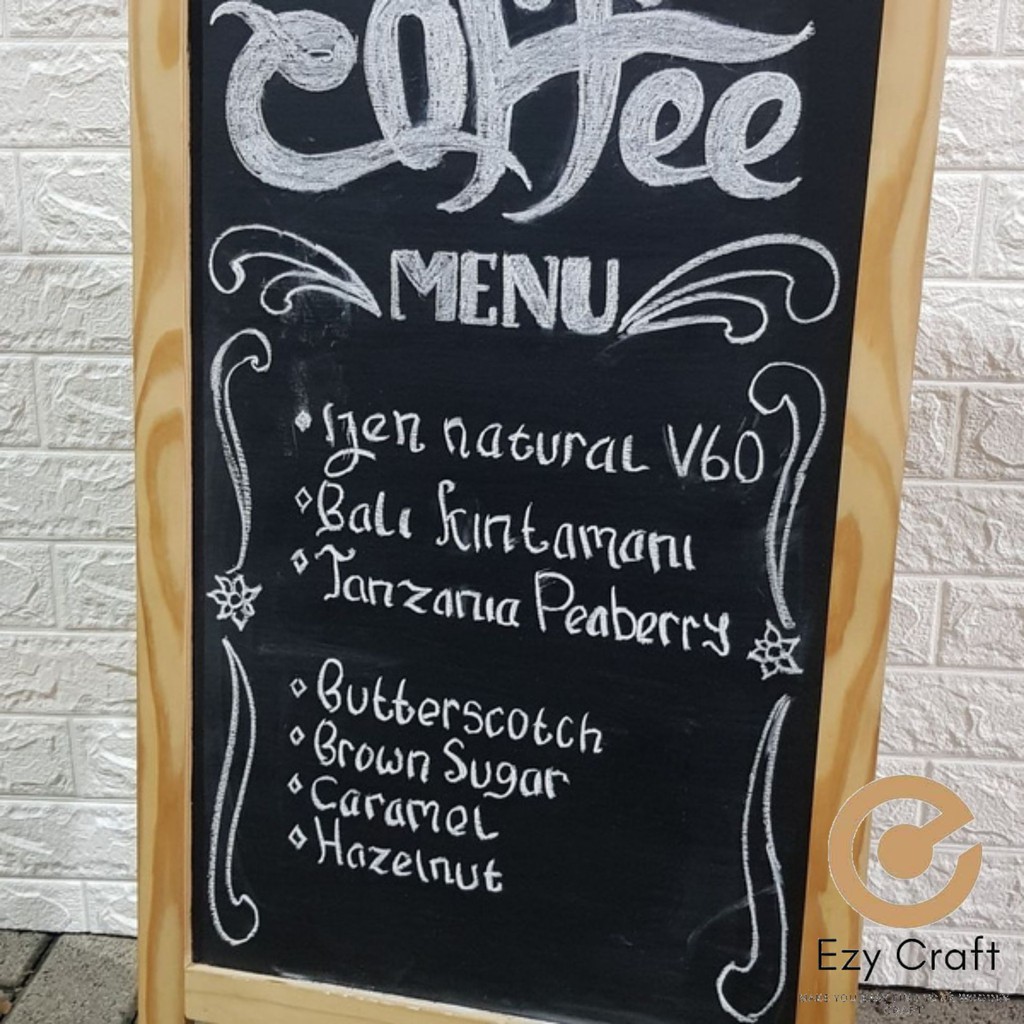 Coffee
MENU
• Ijen natural V60
◇ Bali Kintamani
◇ Tanzania Peaberry
◇ Butterscotch
◇ Brown Sugar
◇ Caramel
◇ Hazelnut
Ezy Craft